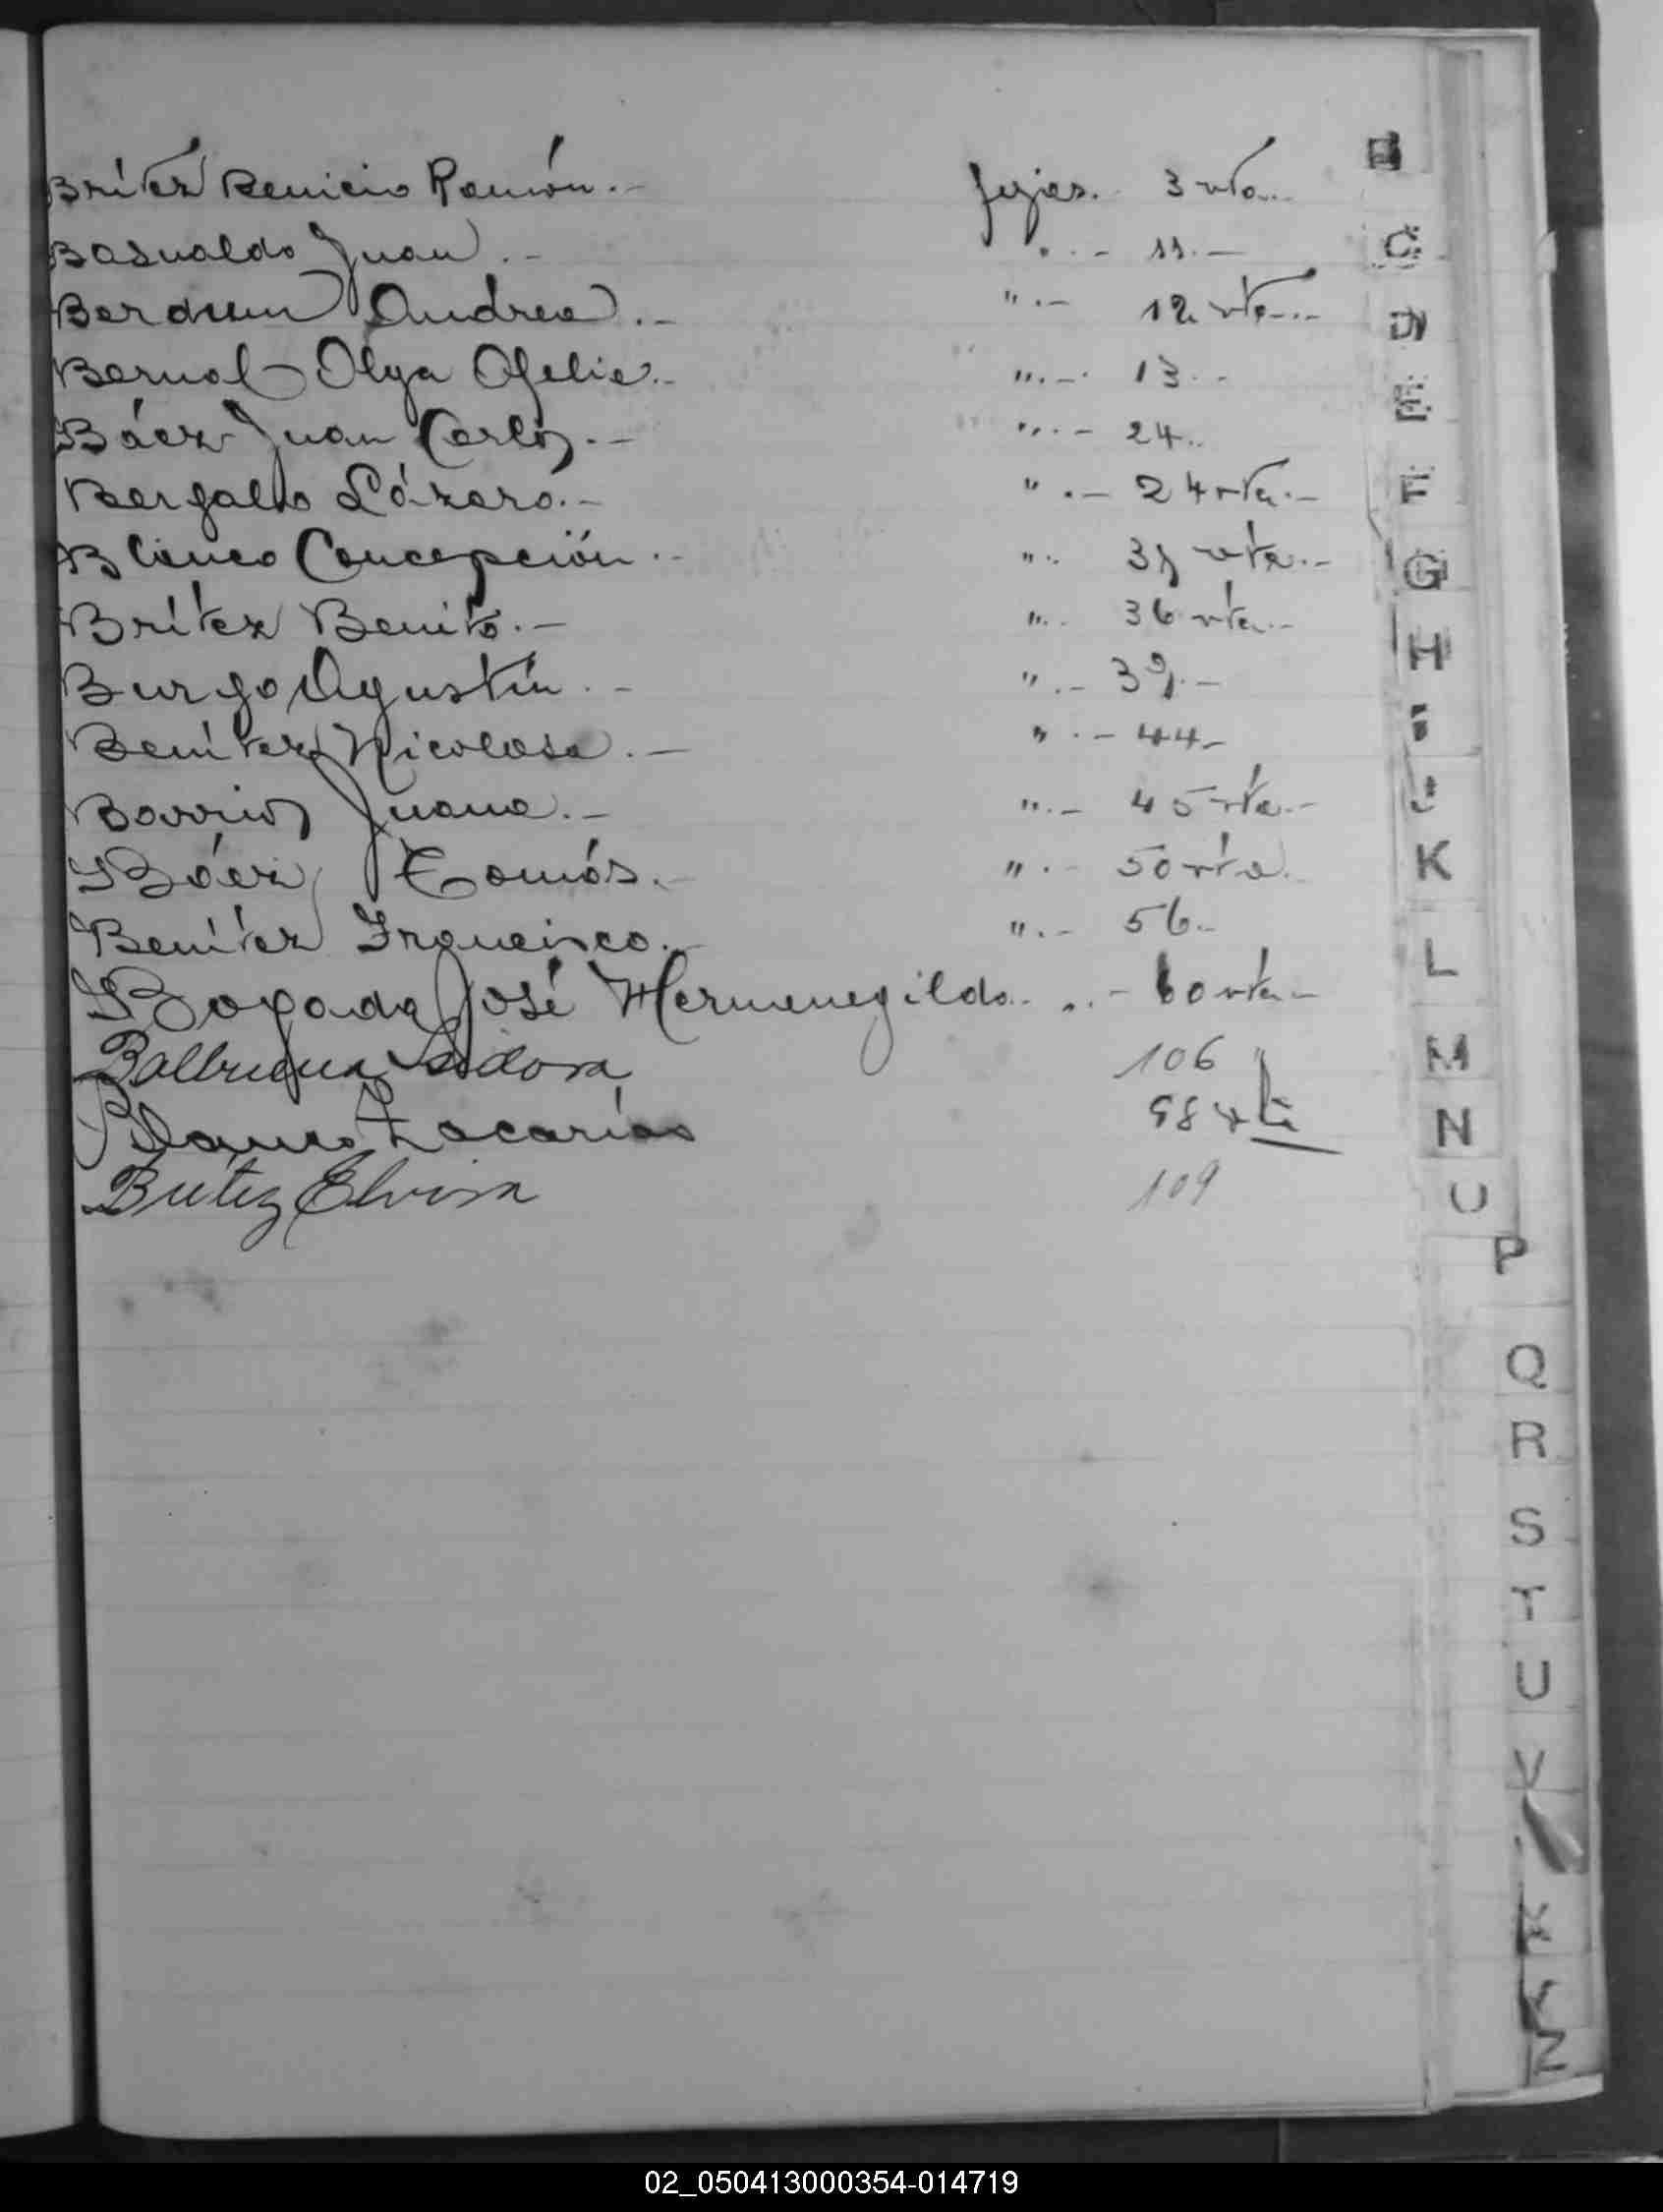 Brítez Benicio Ramón.- fojas.- 3 vta..-
Basualdo Juan.- " .- 11.-
Berdum Andrea.- " .- 12 vta-..-
Bernal Olga Ofelia.- " .- 13.-
Báez Juan Carlos.- " .- 24..
Bergallo Lázaro.- " .- 24 vta.-
Blanco Concepción.- " .. vta..-
Brítez Benito.- " .. 36 vta..-
Burgo Agustín.- " .- 39.-
Benítez Nicolasa.- " .- 44-
Barrios Juana.- " .- 45 vta.-
Báez Tomás.- " .- 50 vta.
Benítez Francisco.- " .- 56.-
Bogado José Hermenegildo.. " .- 60 vta.-
Balbuena 106 "
Blanco Zacarías 98 vta
Britez Elvira 109
B
C
D
E
F
G
H
I
J
K
L
M
N
U
P
Q
R
S
T
U
V
X
Y
Z
02_050413000354-014719